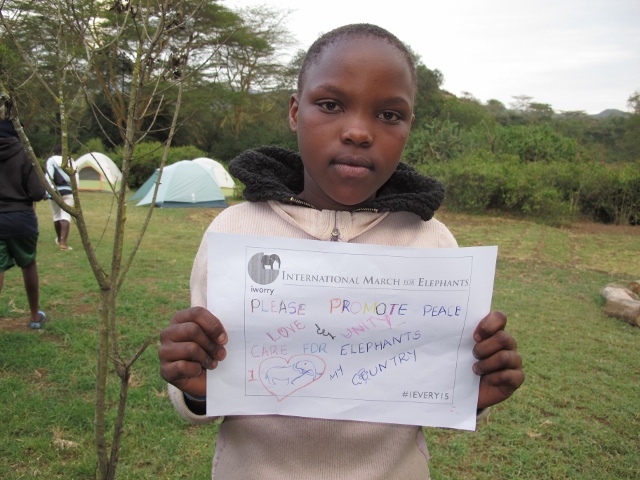 INTERNATIONAL MARCH FOR ELEPHANTS
iworry
PLEASE PROMOTE PEACE
LOVE & UNITY
CARE FOR ELEPHANTS
I MY COUNTRY
#IEVERY15